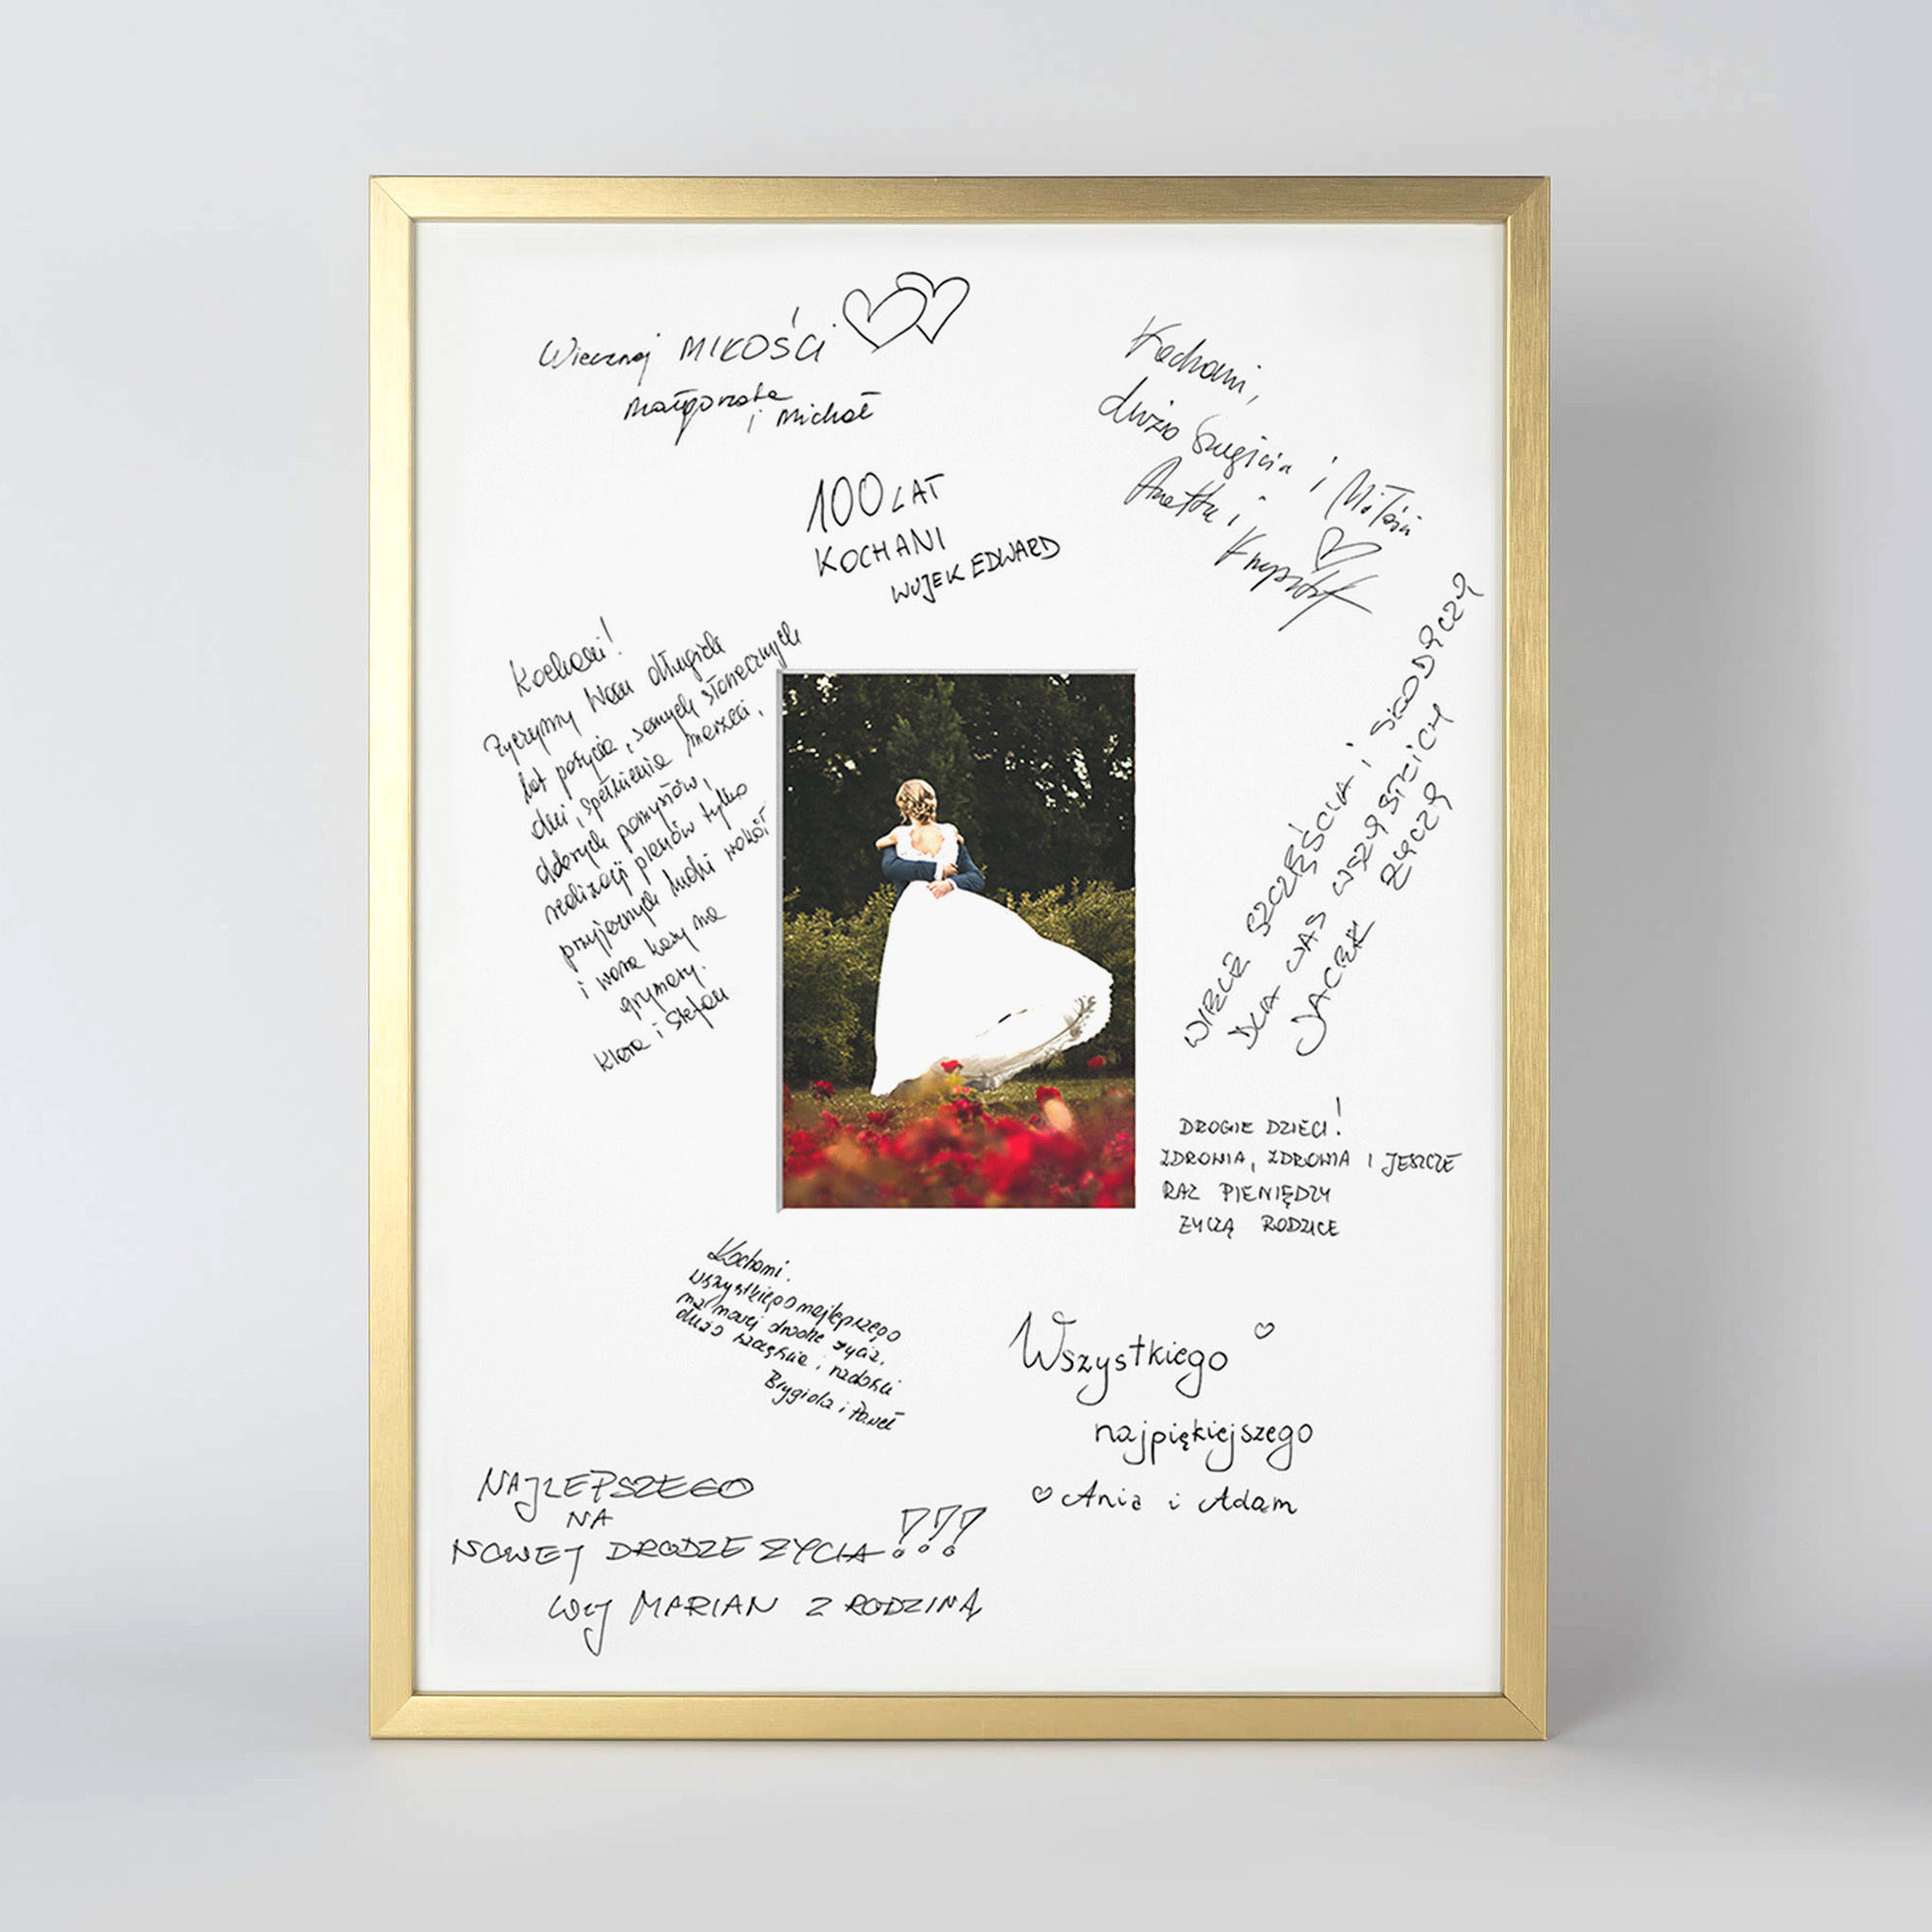 Wiecznej MIŁOŚCI
Małgorzata
i Michał
100 LAT
KOCHANI
WUJEK EDWARD
Kochani,
dużo Szczęścia i Miłości
Anetta i Krzysztof
Kochani!
Życzymy Wam długich
lat pożycia, samych słonecznych
dni, spełnienia marzeń,
dobrych pomysłów,
realizacji planów tylko
przyjaznych ludzi wokół
i wora kasy na
grymasy.
Klara i Stefan
WIELE SZCZĘŚCIA I SŁODYCZY
DLA WAS WSZYSTKICH
JACEK ŻYCZY
DROGIE DZIECI!
ZDROWIA, ZDROWIA I JESZCZE
RAZ PIENIĘDZY
ŻYCZĄ RODZICE
Kochani.
wszystkiego najlepszego
na nowej drodze życia.
dużo szczęścia i radości
Brygida i Paweł
Wszystkiego
najpiękniejszego
Ania i Adam
NAJLEPSZEGO
NA
NOWEJ DRODZE ŻYCIA!!!
WUJ MARIAN Z RODZINĄ